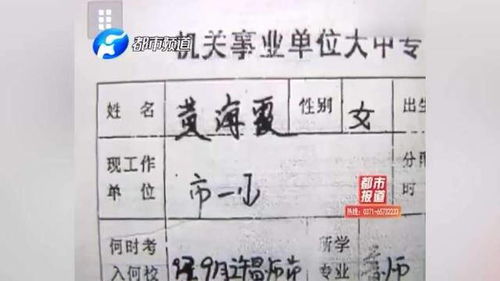 都市频道
机关事业单位大中专
姓名 黄海霞 性别 女 出生
现工作单位 市一小 分
时
都市报道
热线: 0371-65732233
何时考入何校 9月许昌师 所学专业 普师